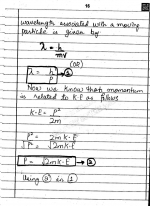 16
wavelength associated with a moving
particle is given by
λ = h/mv
(OR)
λ = h/p → ①
Now we know that momentum
is related to K.E as follows
K.E = p²/2m
p² = 2mK.E
√p² = √2mK.E
P = √2mK.E → ②
Using ② in ①